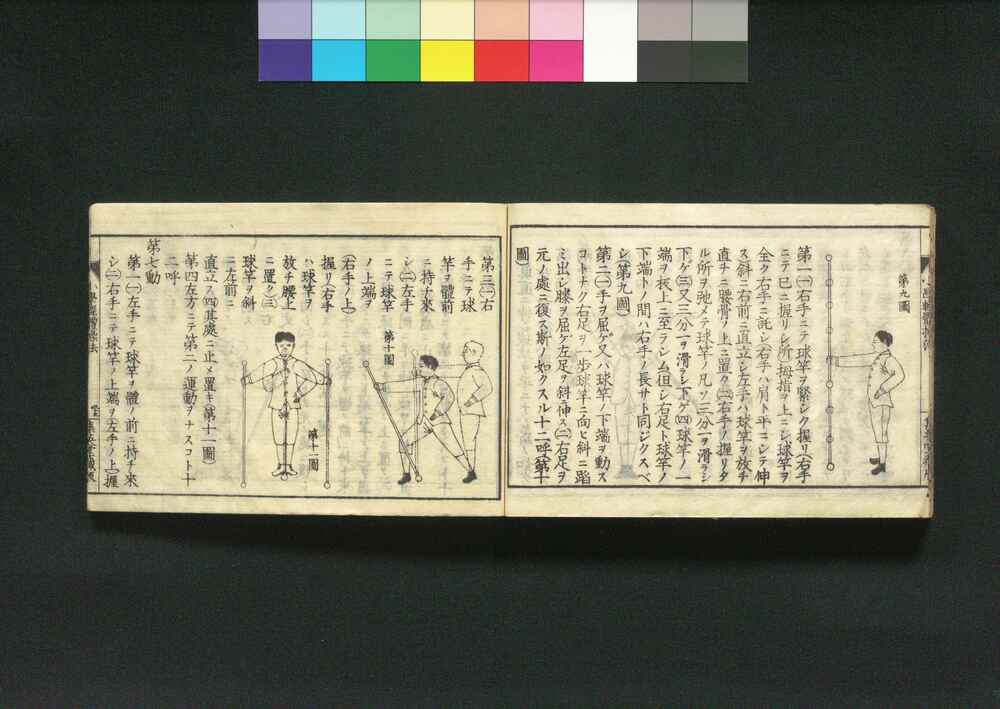 第九圖
第一(一)右手ニテ球竿ヲ緊シク握リ(右手
ニテ已ニ握リシ所拇指ヲ上ニシ)球竿ヲ
全ク右手ニ託シ(右手ハ肩ト平ニシテ伸
ス)斜ニ右前ニ直立シ左手ハ球竿ヲ放チ
直チニ腰骨ノ上ニ置ク(二)右手ノ握リタ
ル所ヲ弛メテ球竿ノ凡ソ三分一ヲ滑ラシ
下ゲ(三)又三分一ヲ滑ラシ下ゲ(四)球竿ノ一
端ヲ牀上ニ至ラシム但シ右足ト球竿ノ
下端トノ間ハ右手ノ長サト同ジクスベ
シ(第九圖)
第二(一)手ヲ屈ゲ又ハ球竿ノ下端ヲ動ス
コトナク右足ヲ一歩球竿ニ向ヒ斜ニ蹈
ミ出シ膝ヲ屈ゲ左足ヲ斜伸ス(二)右足ヲ
元ノ處ニ復ス斯ノ如クスル十二呼(第十
圖)
第三(一)右
手ニテ球
竿ヲ體前
ニ持チ來
シ(二)左手
ニテ球竿
ノ上端ヲ
(右手ノ上)
握リ(右手
ハ球竿ヲ
放チ腰上
ニ置ク)(三)
球竿ヲ斜
ニ左前ニ
第十圖
第十一圖
直立ス(四)其處ニ止メ置キ(第十一圖)
第四左方ニテ第二ノ運動ヲナスコト十
二呼
第七動
第一(一)左手ニテ球竿ヲ體ノ前ニ持チ來
シ(二)右手ニテ球竿ノ上端ヲ左手ノ上握